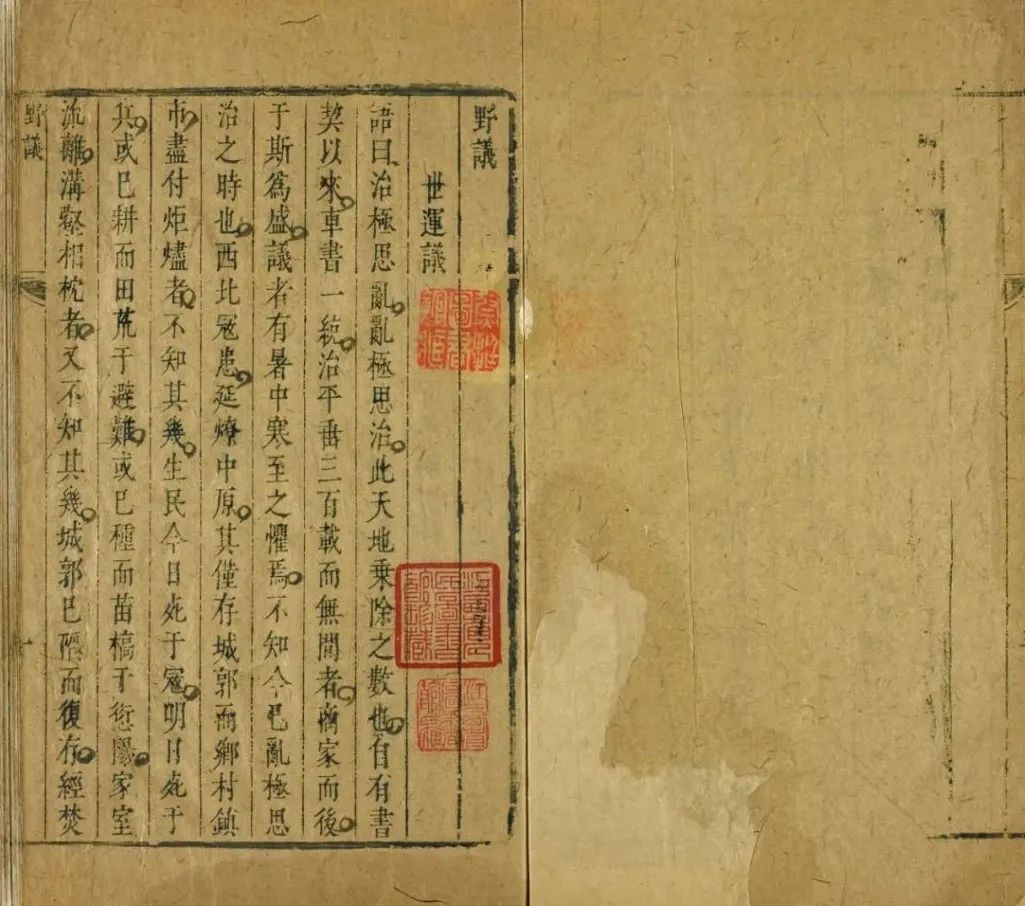 野議
世運議
語曰治極思亂亂極思治此天地乗除之數也自有書
契以來車書一統治平垂三百載而無間者商家而後
于斯為盛議者有暑中寒至之懼焉不知今已亂極思
治之時也西北寇患延燎中原其僅存城郭而鄉村鎮
市盡付炬燼者不知其幾生民今日死于寇明日死于
兵或已耕而田荒于避難或已種而苗槁于愆陽家室
流離溝壑相枕者又不知其幾城郭已隳而復存經焚
野議
江西省
圖書
館珍藏